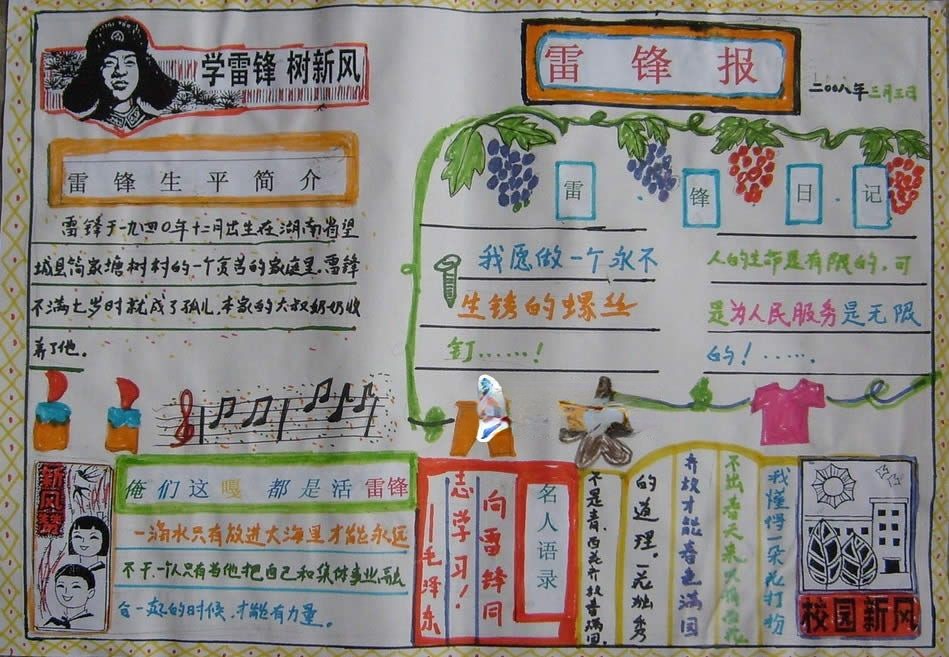 学雷锋 树新风
雷锋报
二00八年三月三日
雷锋生平简介
雷锋于一九四0年十二月出生在湖南省望
城县简家塘村的一个贫苦的家庭里.雷锋
不满七岁时就成了孤儿.本家的六叔奶奶收
养了他.
雷锋日记
我愿做一个永不
生锈的螺丝
钉……!
人的生命是有限的.可
是为人民服务是无限
的!……
新风赞
俺们这嘎都是活雷锋
一滴水只有放进大海里才能永远
不干.一个人只有当他把自己和集体事业融
合一起的时候,才能有力量.
名人语录
向雷锋同
志学习!
——毛泽东
我懂得一朵花打扮
不出春天来
齐放才能春色满园
的道理.一花独秀
不是春.百花齐放春满园.
校园新风